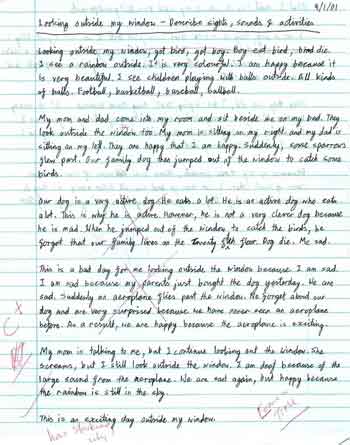 9/1/01
Looking outside my window - Describe sights, sounds & activities
Looking outside my window, got bird, got boy. Boy eat bird, bird die.
I see a rainbow outside. It is very colourful. I am happy because it
is very beautiful. I see children playing with balls outside. All kinds
of balls. Football, basketball, baseball, ballball.
My mom and dad come into my room and sit beside me on my bed. They
look outside the window too. My mom is sitting on my right and my dad is
sitting on my left. They are happy that I am happy. Suddenly, some sparrows
flew past. Our family dog then jumped out of the window to catch some
birds.
Our dog is a very active dog. He eats a lot. He is an active dog who eats
alot. This is why he is active. However, he is not a very clever dog because
he is mad. When he jumped out of the window to catch the birds, he
forgot that our family lives on the Twenty fifth floor. Dog die. Me sad.
This is a bad day for me looking outside the window because I am sad.
I am sad because my parents just bought the dog yesterday. We are
sad. Suddenly an aeroplane flies past the window. We forget about our
dog and are very surprised because we have never seen an aeroplane
before. As a result, we are happy because the aeroplane is exciting.
C+
My mom is talking to me, but I continue looking out the window. She
screams, but I still look outside the window. I am deaf because of the
large sound from the aeroplane. We are not again, but happy because
the rainbow is still in the sky.
This is an exciting day outside my window.